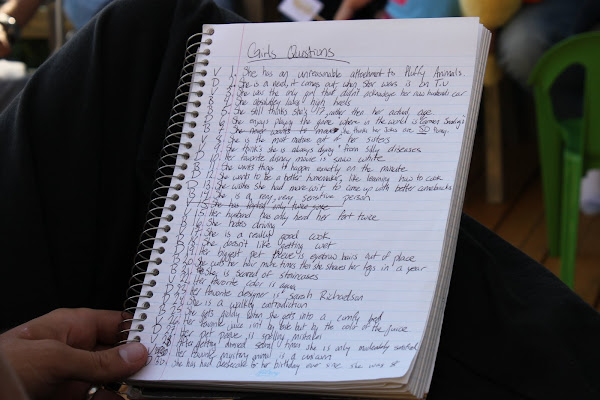 Girls Questions
V 1. She has an unreasonable attachment to Fluffy Animals.
D 2. She is a nerd, it comes out when Star wars is on T.V
B 3. She was the only girl that didn't acknowledge her new husbands car
B 4. She absolutely loves high heels
D 5. She still thinks she's 17, rather then her actual age
B 6. She enjoys playing the game where in the world is Carmen Sandiego
B 7. She thinks her jokes are SO funny.
V 8. She is the most mature out of her sisters
V 9. She thinks she is always dying from silly diseases
D 10. her favorite disney movie is snow white
B 11. She wants things to happen exactly on the minute
12. She wants to be a better homemaker, like learning how to cook
D 13. She wishes she had more wit to come up with better comebacks
14. She is a very, very, sensitive person
15. Her husband has only heard her fart twice
16. She hates driving
17. She is a really good cook
18. She doesn't like getting wet
19. Her biggest pet peeve is eyebrow hairs out of place
20. She cuts her hair more times than she shaves her legs in a year
She is scared of staircases
Her favorite color is aqua
Her favorite designer is Sarah Richardson
She is a walking contradiction
She gets giddy when she gets into a comfy bed
Her favorite juice isn't by taste but by the color of the juice
Her pet peeve is spelling mistakes
After getting darned several times she is only moderately satisfied
Her favorite mystery animal is a unicorn
She has had cheesecake for her birthday ever since she was